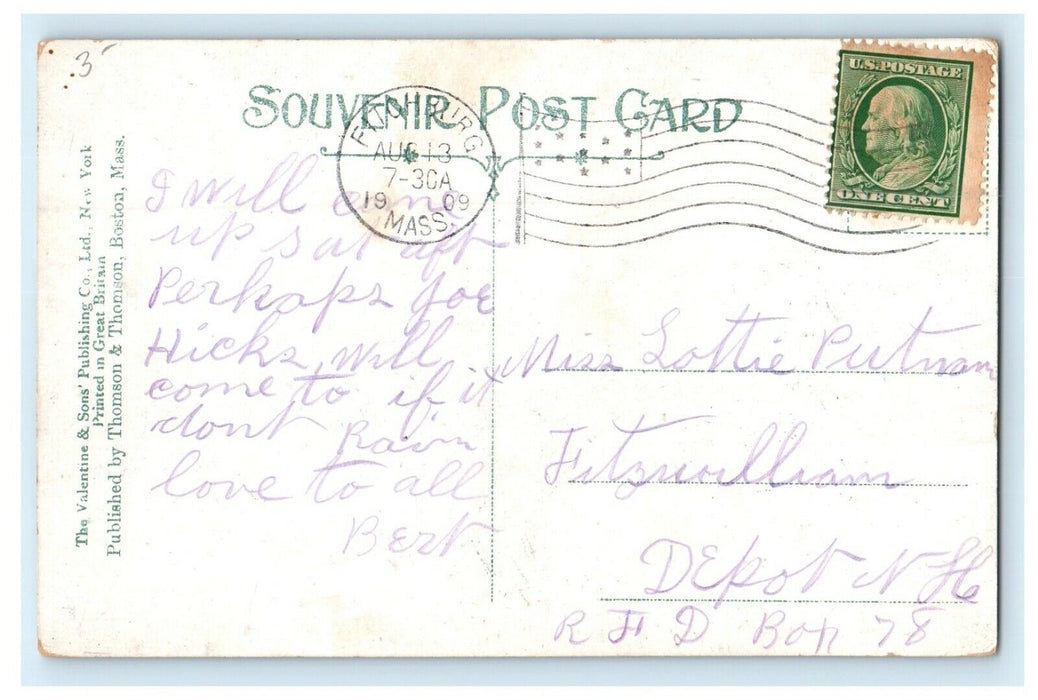 3
SOUVENIR POST CARD
U.S. POSTAGE
ONE CENT
FITCHBURG
AUG 13
7-30A
1909
MASS.
The Valentine & Sons' Publishing Co., Ltd., New York
Printed in Great Britain
Published by Thomson & Thomson, Boston, Mass.
I will come
up sat aft
Perhaps Joe
Hicks will
come to if it
dont Rain
love to all
Bert
Miss Lottie Putnam
Fitzwilliam
Depot N H
R F D Box 78